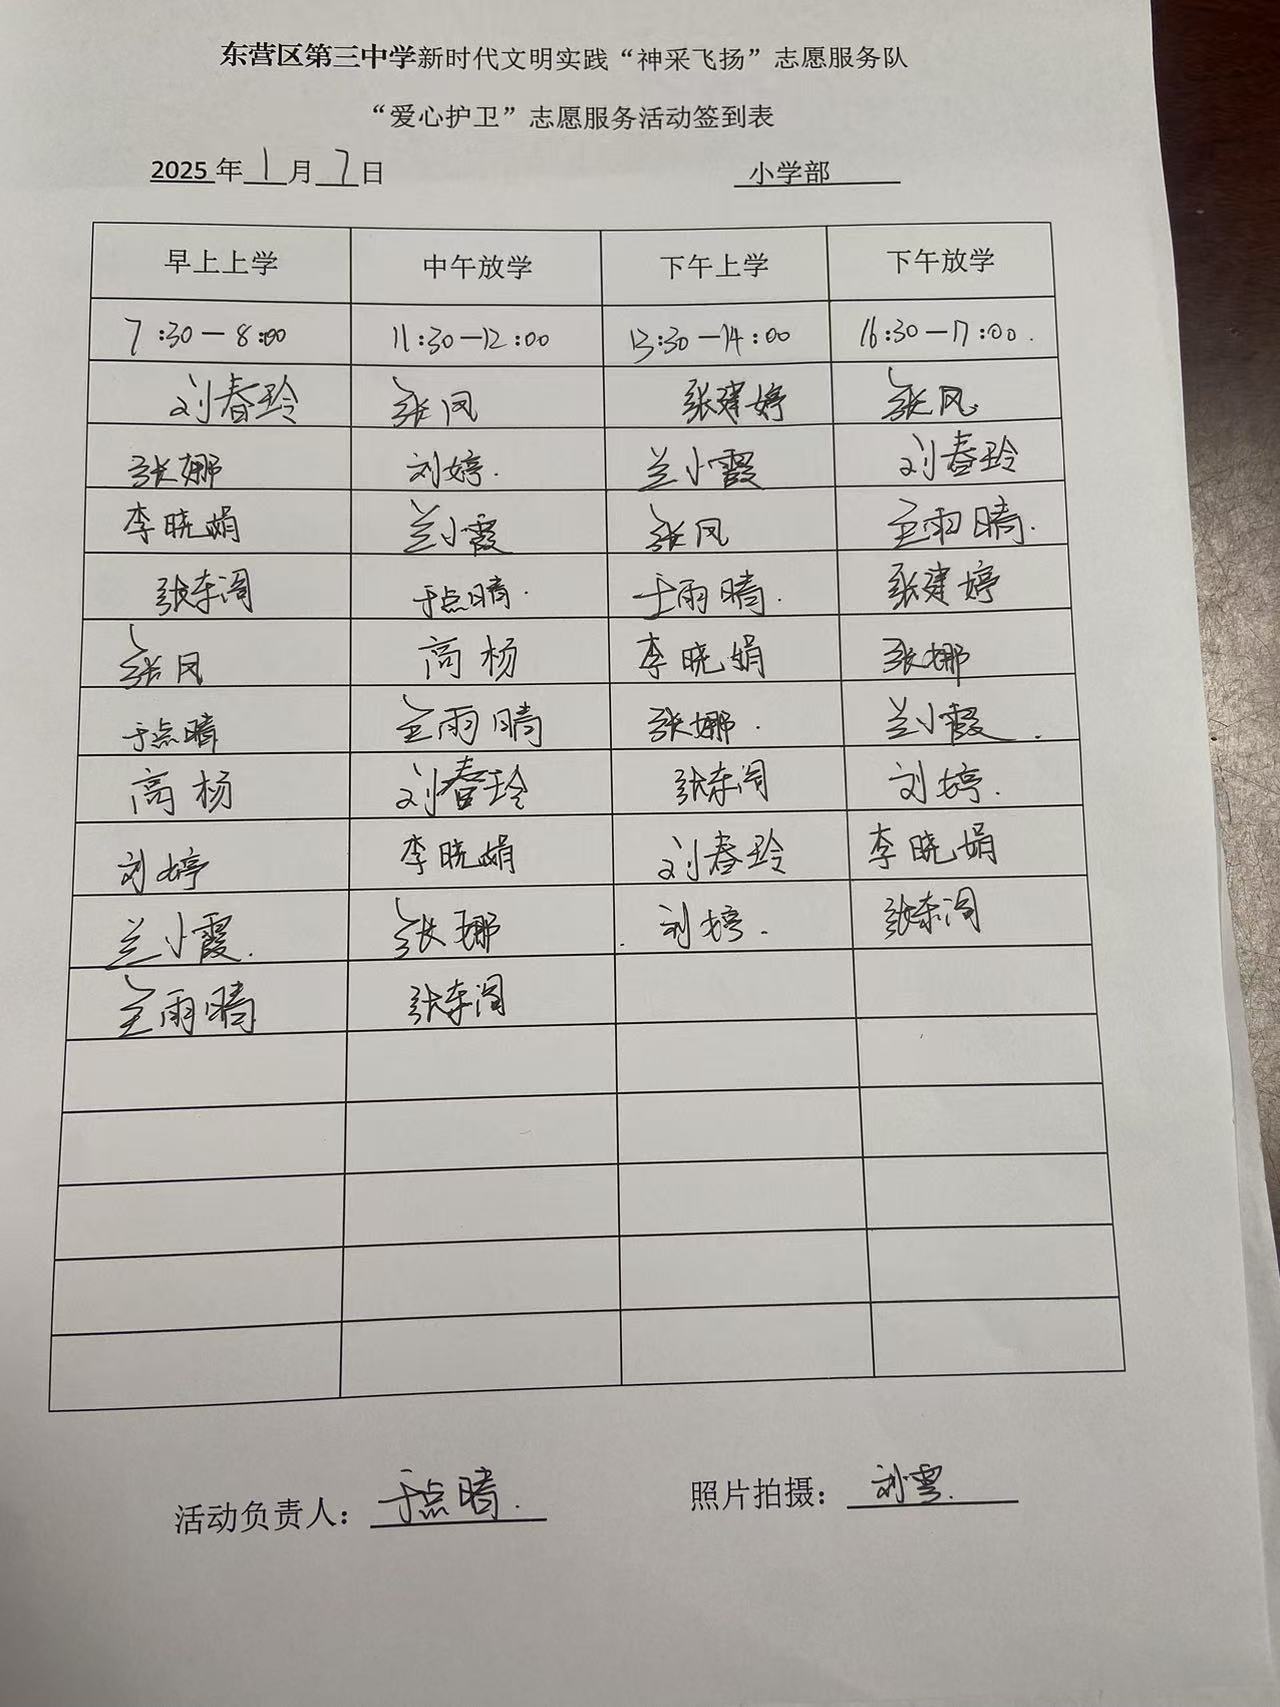 东营区第三中学新时代文明实践“神采飞扬”志愿服务队
“爱心护卫”志愿服务活动签到表
2025年1月7日 小学部
早上上学 中午放学 下午上学 下午放学
7:30—8:00 11:30—12:00 13:30—14:00 16:30—17:00.
刘春玲 张凤 张建婷 张凤.
张娜 刘婷. 兰小霞 刘春玲
李晓娟 兰小霞 张凤 王雨晴.
张东阁 于点晴. 王雨晴. 张建婷
张凤 高杨 李晓娟 张娜
于点晴 王雨晴 张娜. 兰小霞.
高杨 刘春玲 张东阁 刘婷.
刘婷 李晓娟 刘春玲 李晓娟
兰小霞. 张娜 刘婷. 张东阁
王雨晴 张东阁
活动负责人：于点晴. 照片拍摄：刘雪.